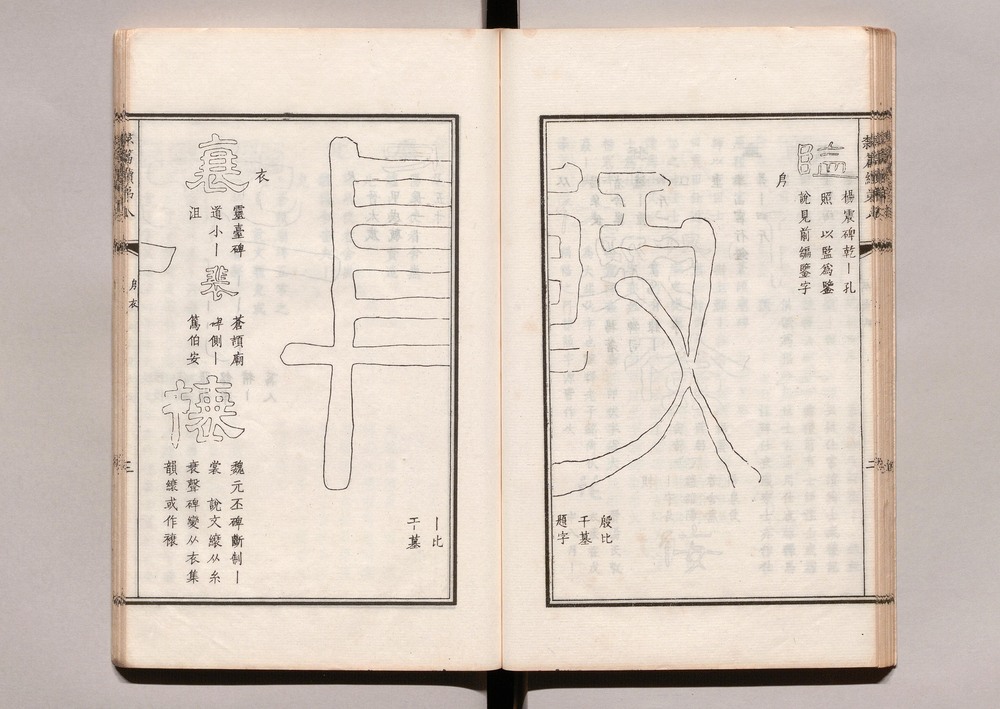 監
楊震碑乾丨孔
照 以監為鑒
說見前編鑒字
㐆
殷
殷比
干墓
題字
丨比
干墓
衣
襄
靈臺碑
道小丨
沮
裴
蒼頡廟
碑側丨
篤伯安
魏元丕碑斷制丨
裳 說文縗从糸
衰聲碑變从衣集
韻縗或作䙑
㐆衣
三